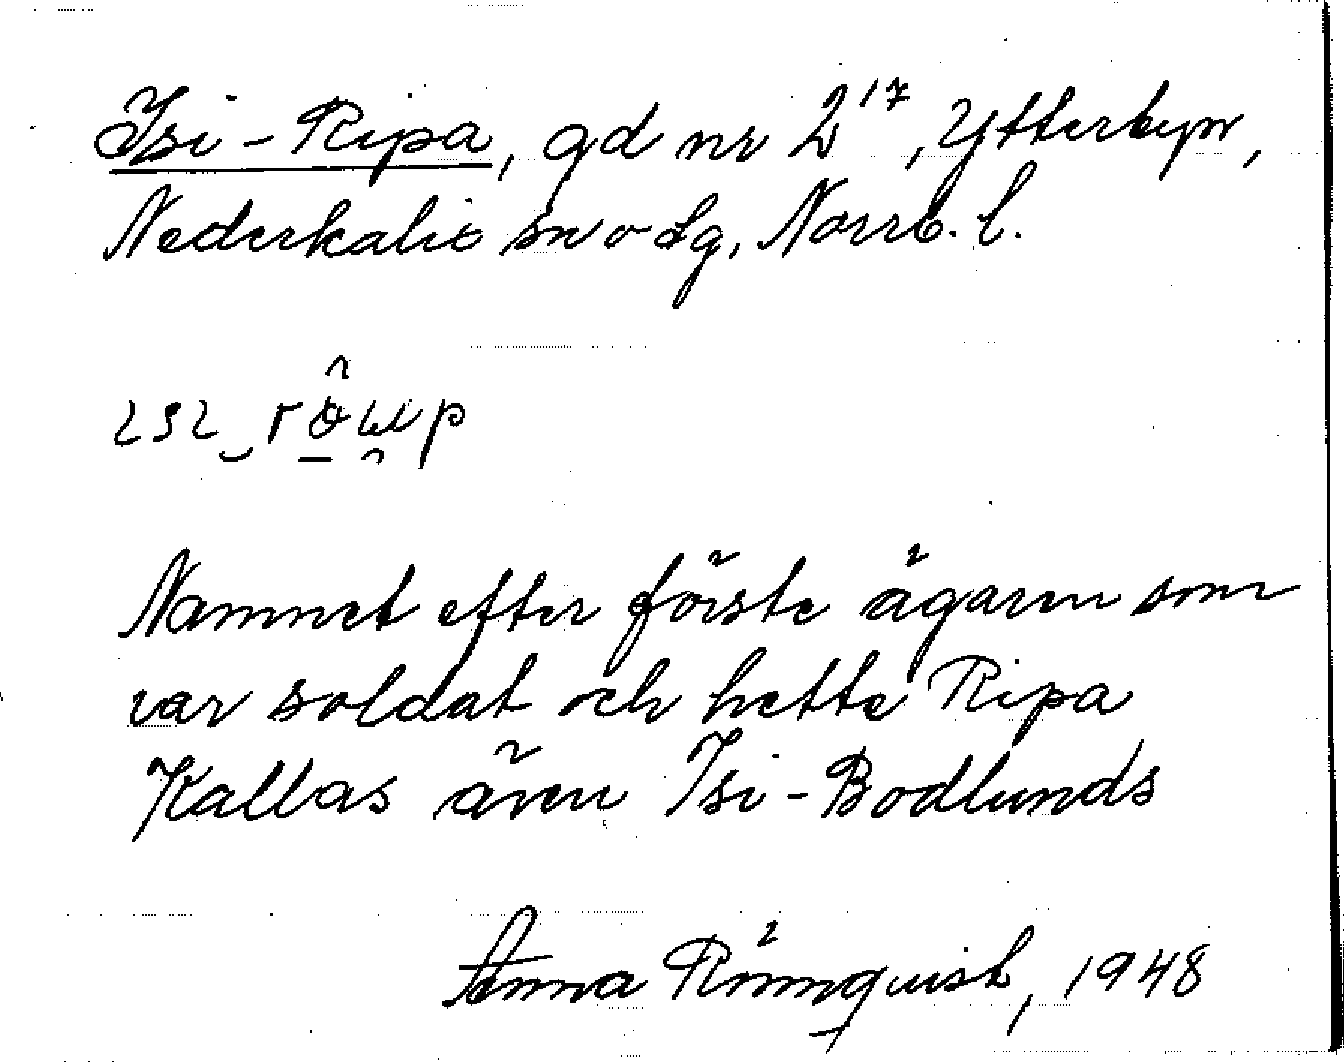 Isi-Ripa, gd nr 2¹⁷, Ytterbyn,
Nederkalix sn o lg, Norrb. l.
Namnet efter förste ägaren som
var soldat och hette Ripa
Kallas även Isi-Bodlunds
Anna Rönnquist, 1948